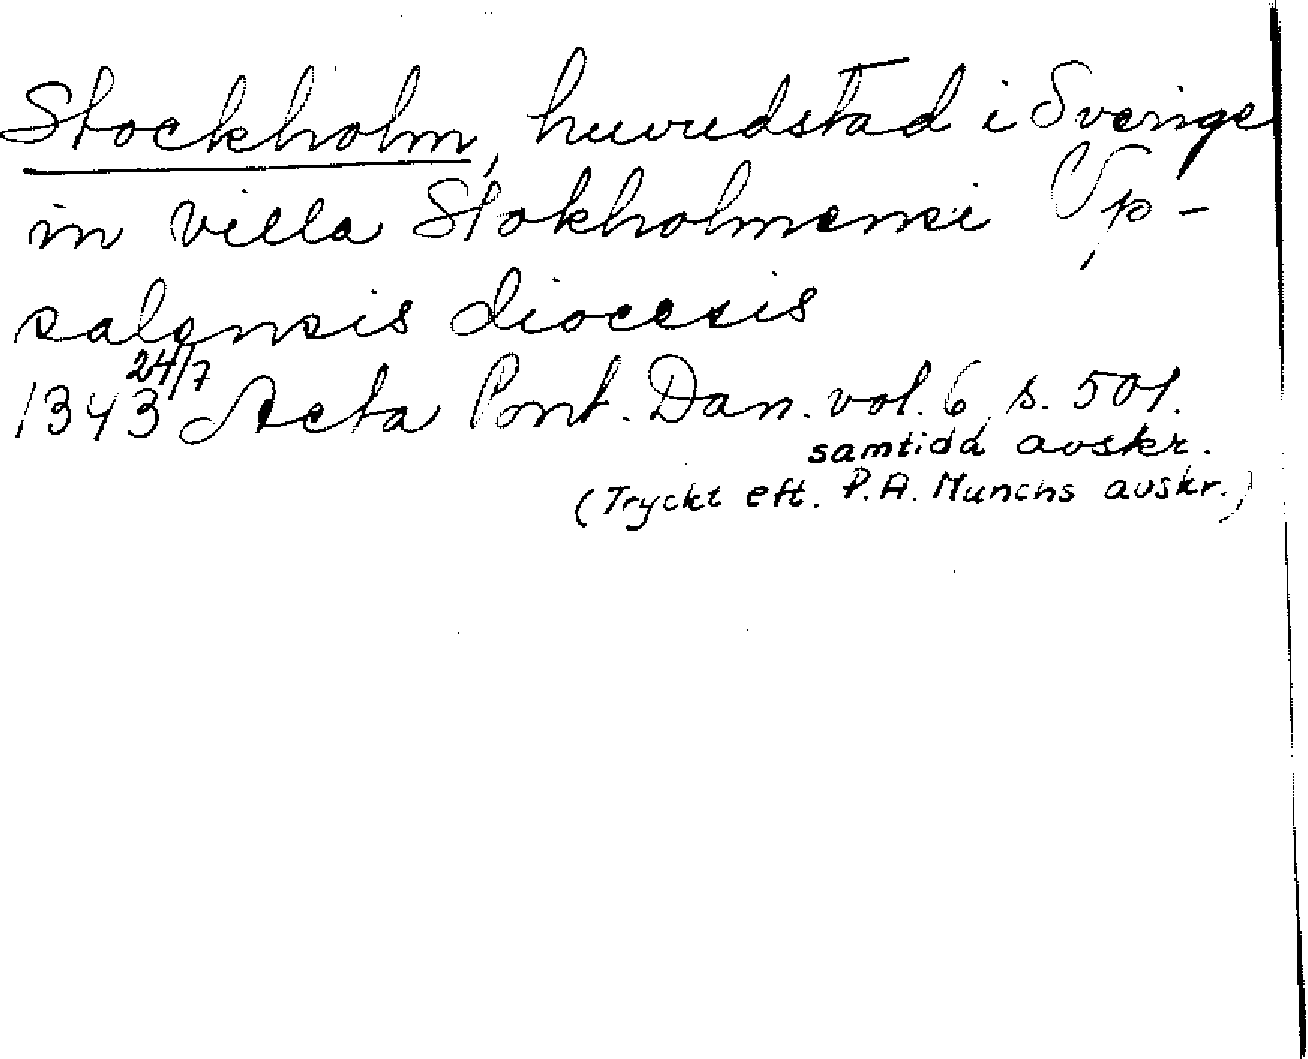 Stockholm, huvudstad i Sverige
in villa Stokholmensi Up-
salensis diocesis
1343 24/7 Acta Pont. Dan. vol. 6, s. 501.
samtida avskr.
(Tryckt eft. P.A. Munchs avskr.)